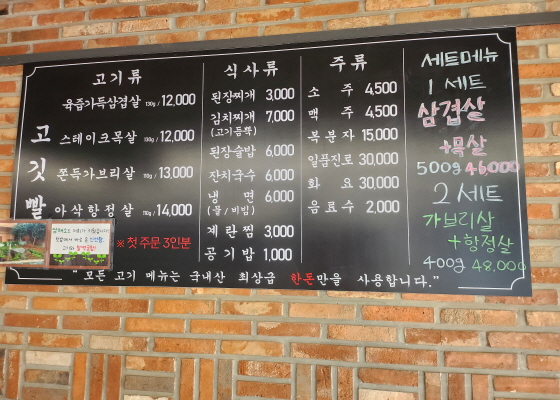 고깃빨
고기류
육즙가득삼겹살 130g / 12,000
스테이크목살 130g / 12,000
쫀득가브리살 110g / 13,000
아삭항정살 110g / 14,000
※ 첫 주문 3인분
식사류
된장찌개 3,000
김치찌개 7,000
(고기듬뿍)
된장술밥 6,000
잔치국수 6,000
냉면 6,000
(물/비빔)
계란찜 3,000
공기밥 1,000
주류
소주 4,500
맥주 4,500
복분자 15,000
일품진로 30,000
화요 30,000
음료수 2,000
세트메뉴
1 세트
삼겹살
+목살
500g 46,000
2 세트
가브리살
+항정살
400g 48,000
"모든 고기 메뉴는 국내산 최상급 한돈만을 사용합니다."